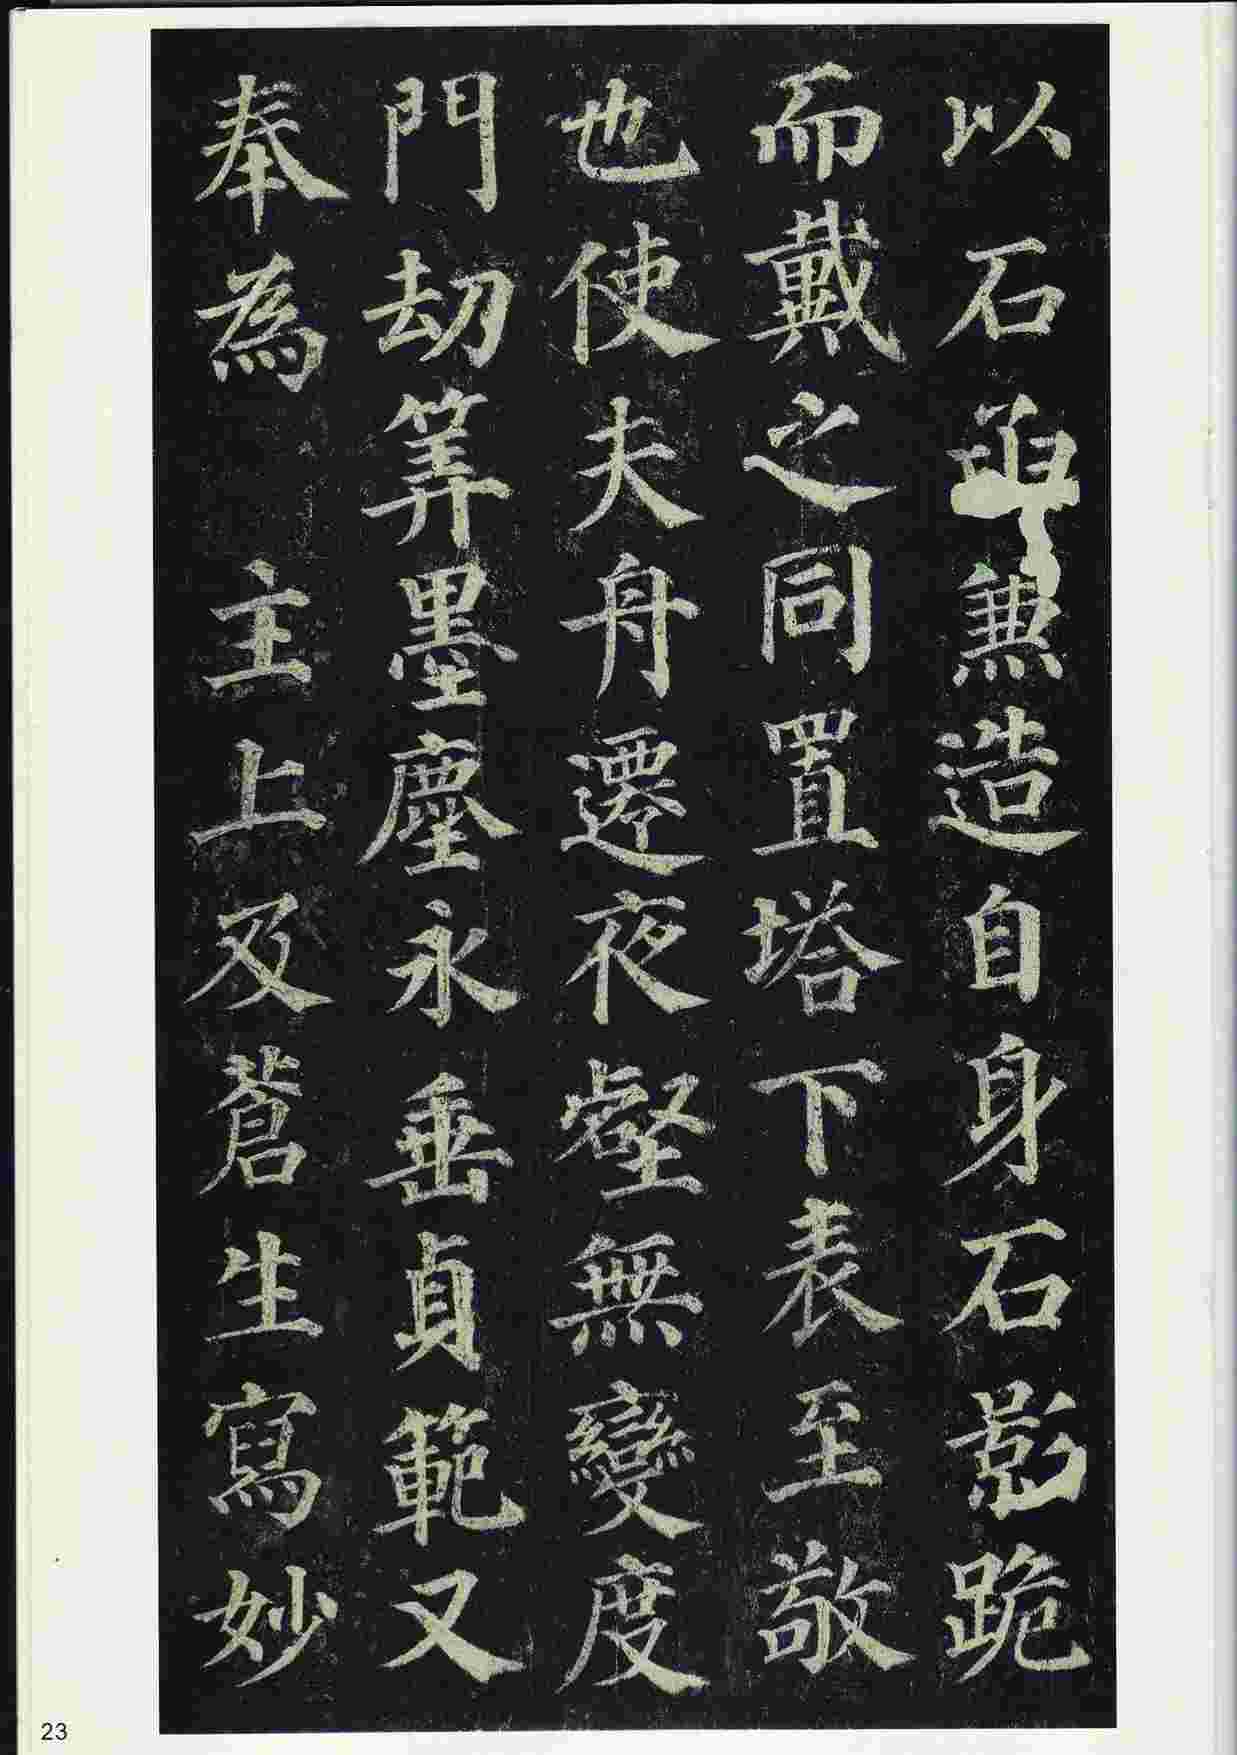 以石函兼造自身石影跪
而戴之同置塔下表至敬
也使夫舟遷夜壑無變度
門劫筭墨塵永垂貞範又
奉為主上及蒼生寫妙
23